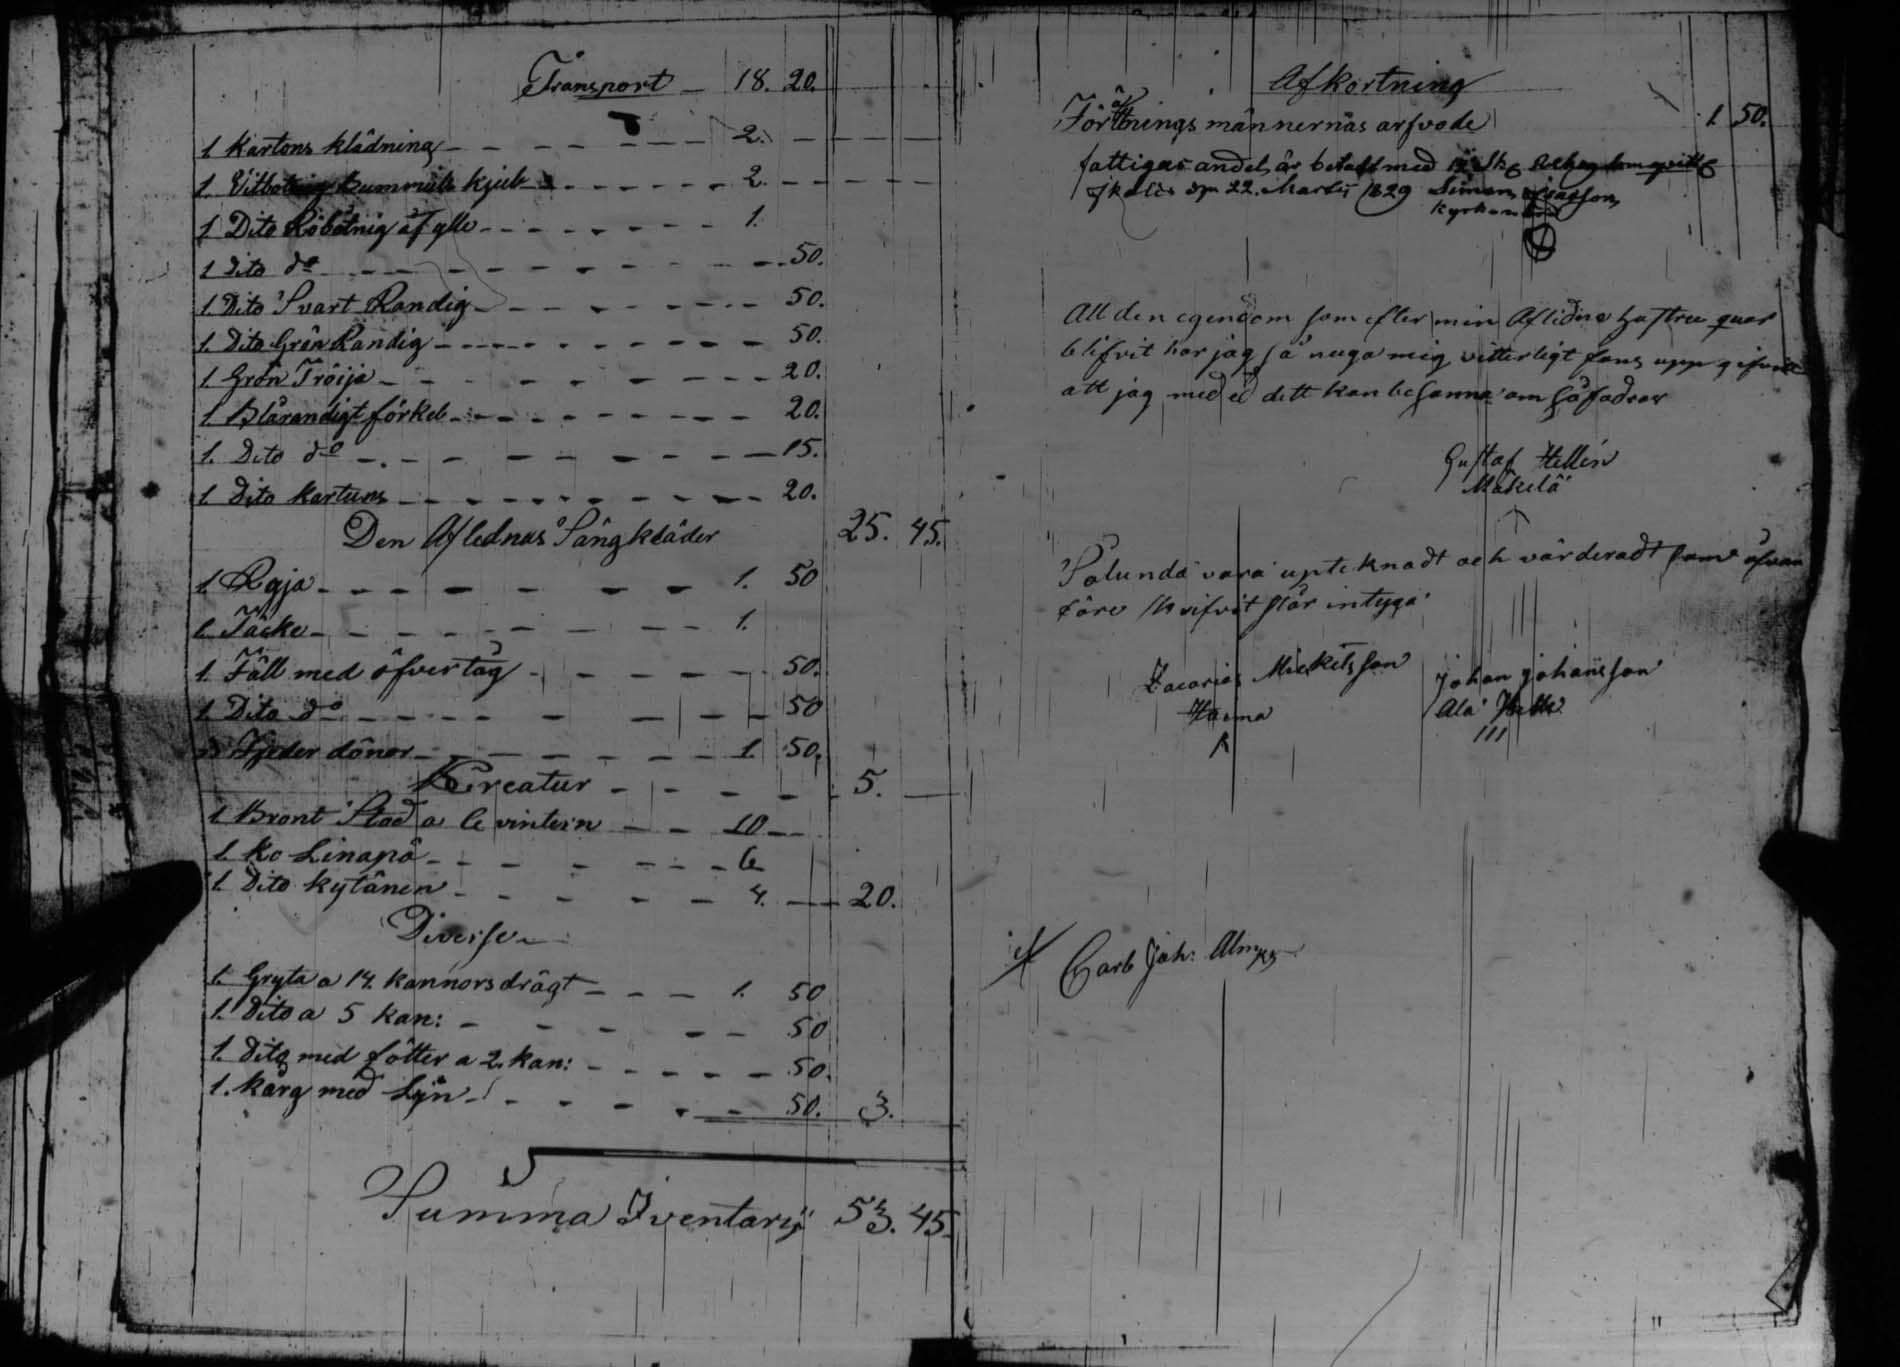 Transport 18. 20.
1 Kartons klädning 2.
1. kjol 2.
1 Dito Röbotnig af ylle 1.
1 dito do 50.
1. Dito Svart Randig 50.
1. Dito Grön Randig 50.
1 Grön Tröija 20.
1 Blårandigt förkel 20.
1. Dito do 15.
1 Dito Kartuns 20.
Den Aflednas Sängkläder 25. 45.
1 Ragja 1. 50
1. Täcke 1.
1. Fäll med öfvertåg 50.
1 Dito do 50
dönor 1. 50.
Kreatur 5.
1 Bront Stod a vintern 10
1. Ko Linapä 6
1 Dito kytänen 4. 20.
Diverse
1. Gryta a 14 kannors drägt 1. 50
1. Dito a 5 kan: 50
1. Dito med fötter a 2. kan: 50.
1. Kårg med Lijn 50. 3.
Summa Iventarij 53. 45.
Afkortning
Förättnings männernas arfvode 1 50.
fattigas andel är betalt med
d 22. Martij 1829 Simon
All den egendom som efter min Aflidna hustru quar
blifvit har jag så nuga mig vitterligt fans upp gifvitt
att jag med ed dett kan besanna om så fadras
Gustaf Hellén
Mäkelä
Sålunda vara upteknadt och värderadt som åfvan
före skrifvit står intyga
Zacarias Mickelsson Johan Johansson
Harma Ala
III
Carl Joh: